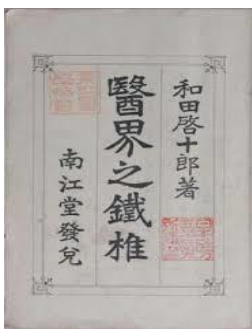 和田啓十郎著
醫界之鐵椎
南江堂發兌